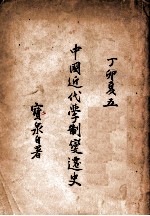 丁卯夏五
中國近代学制變遷史
寶泉自